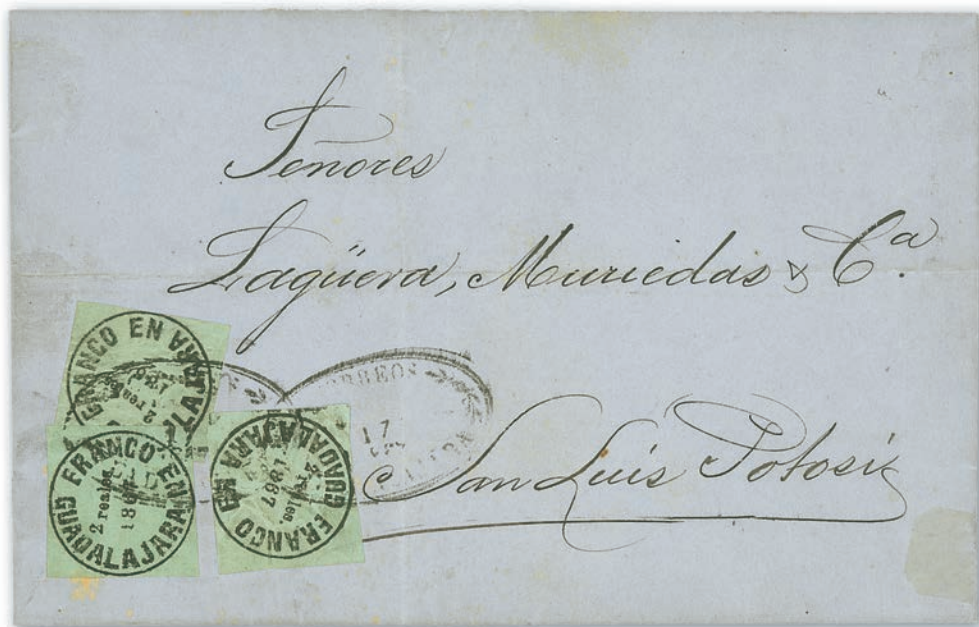 Señores
Lagüera, Muriedas & Cª.
San Luis Potosi
FRANCO EN GUADALAJARA
2 reales
186
FRANCO EN GUADALAJARA
2 reales
1867
FRANCO EN GUADALAJARA
reales
1867
CORREOS
17